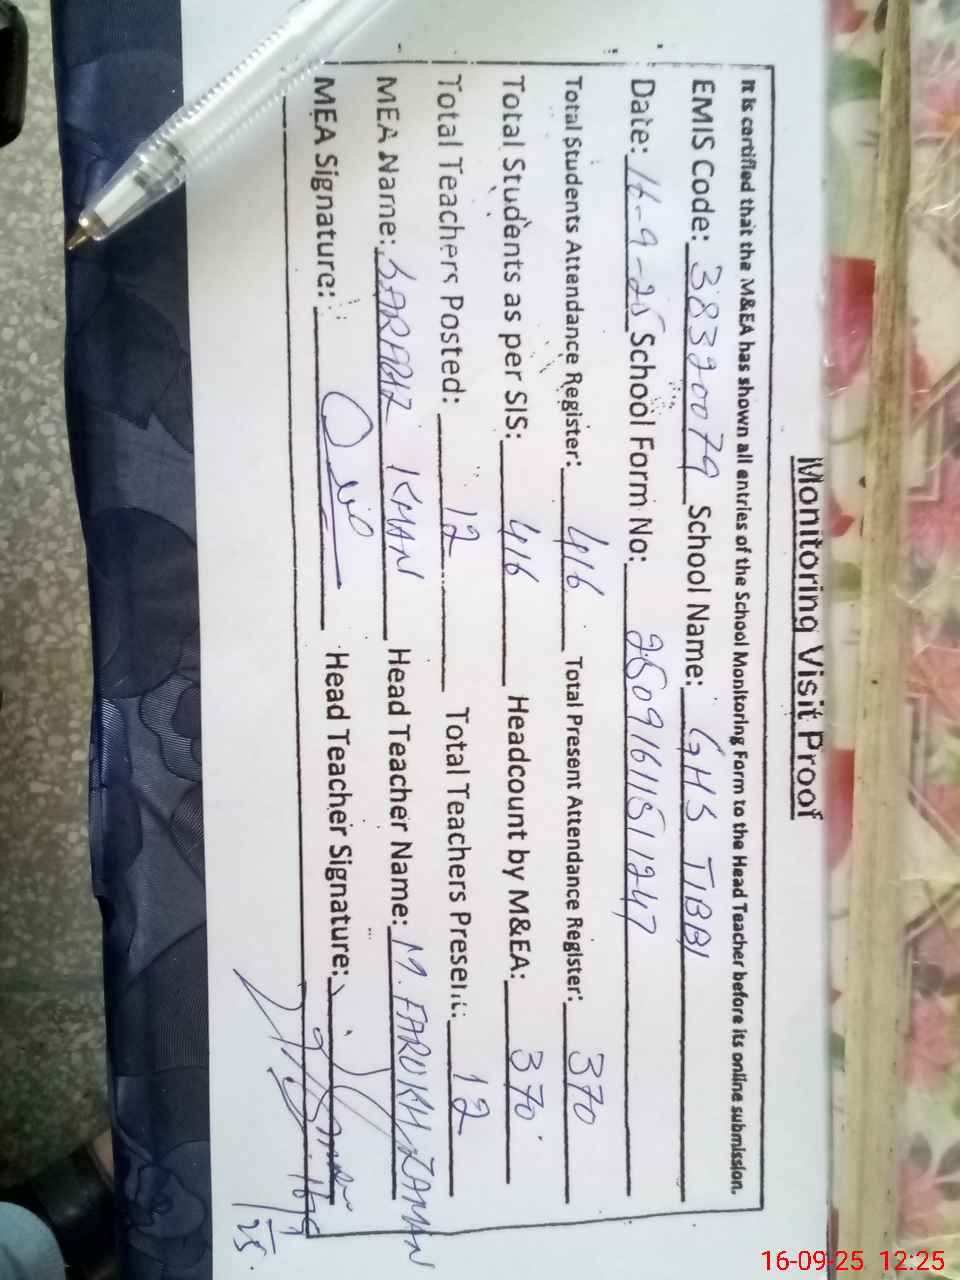 Monitoring Visit Proof
It is certified that the M&EA has shown all entries of the School Monitoring Form to the Head Teacher before its online submission.
EMIS Code: 38320079 School Name: GHS TIBBI
Date: 16-9-25 School Form No: 25091611511247
Total Students Attendance Register: 416 Total Present Attendance Register: 370
Total Students as per SIS: 416 Headcount by M&EA: 370
Total Teachers Posted: 12 Total Teachers Present: 12
MEA Name: SARFARAZ KHAN Head Teacher Name: M. FAROKH ZAMAN
MEA Signature: Head Teacher Signature:
16-09-25 12:25